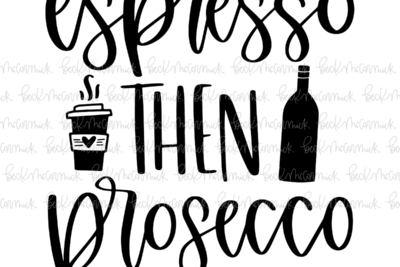 espresso
THEN
prosecco